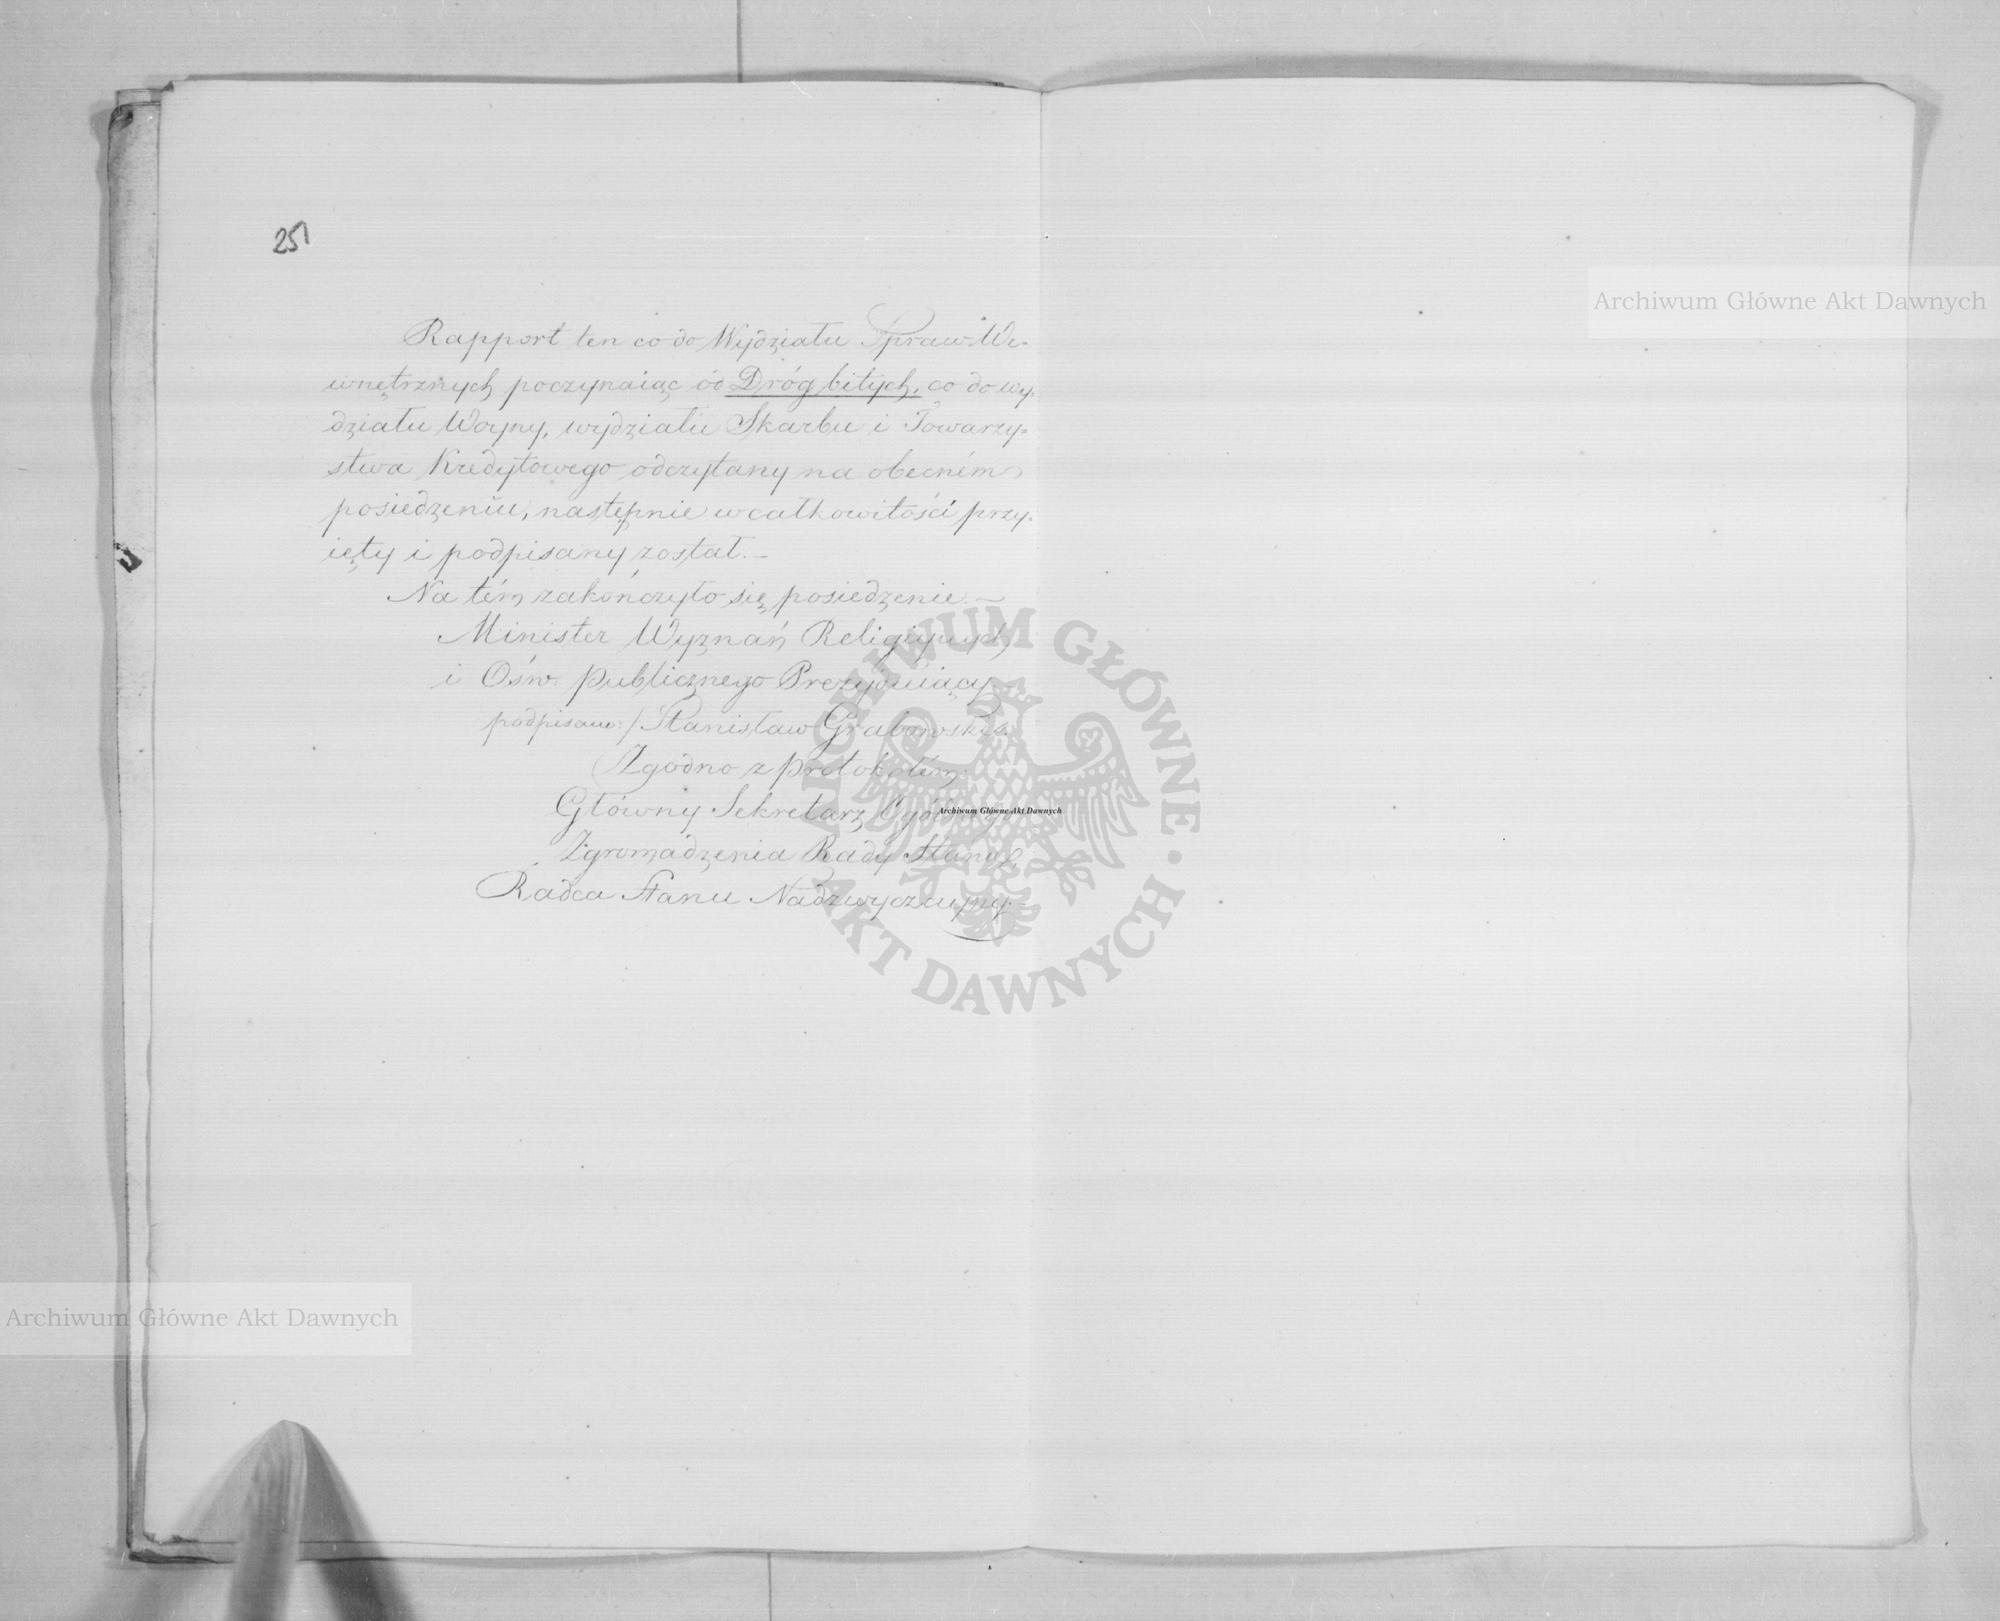 251
Rapport ten co do Wydziału Spraw We-
wnętrznych poczynaiąc ód Dróg bitych, co do wy-
działu Woyny, wydziału Skarbu i Towarzy-
stwa Kredytowego odczytany na obecném
posiedzeniu, następnie w całkowitości przy-
ięty i podpisany został.—
Na tém zakończyło się posiedzenie.—
Minister Wyznań Religiynych
i Ośw. Publicznego Prezyduiący
podpisano:/ Stanisław Grabowski.
Zgodno z protokołem:
Główny Sekretarz
Zgromadzenia Rady Stanu,
Radca Stanu Nadzwyczayny.—
Archiwum Główne Akt Dawnych
Archiwum Główne Akt Dawnych
Archiwum Główne Akt Dawnych
ARCHIWUM GŁÓWNE
AKT DAWNYCH